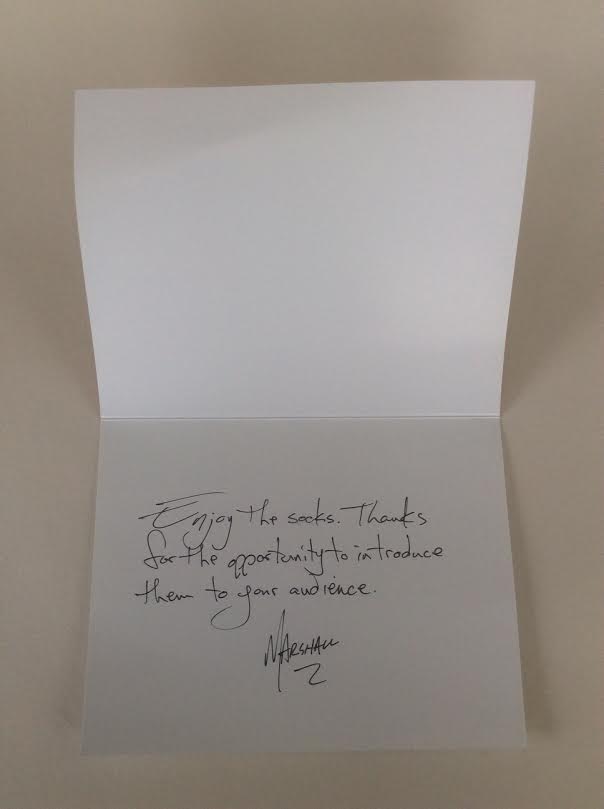 Enjoy the socks. Thanks
for the opportunity to introduce
them to your audience.
Marshall